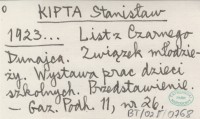 KIPTA Stanisław
1923... List z Czarnego
Dunajca. Związek młodzie-
ży. Wystawa prac dzieci
szkolnych. Przedstawienie.
– Gaz. Podh. 11, nr 26.
BT/025/0768